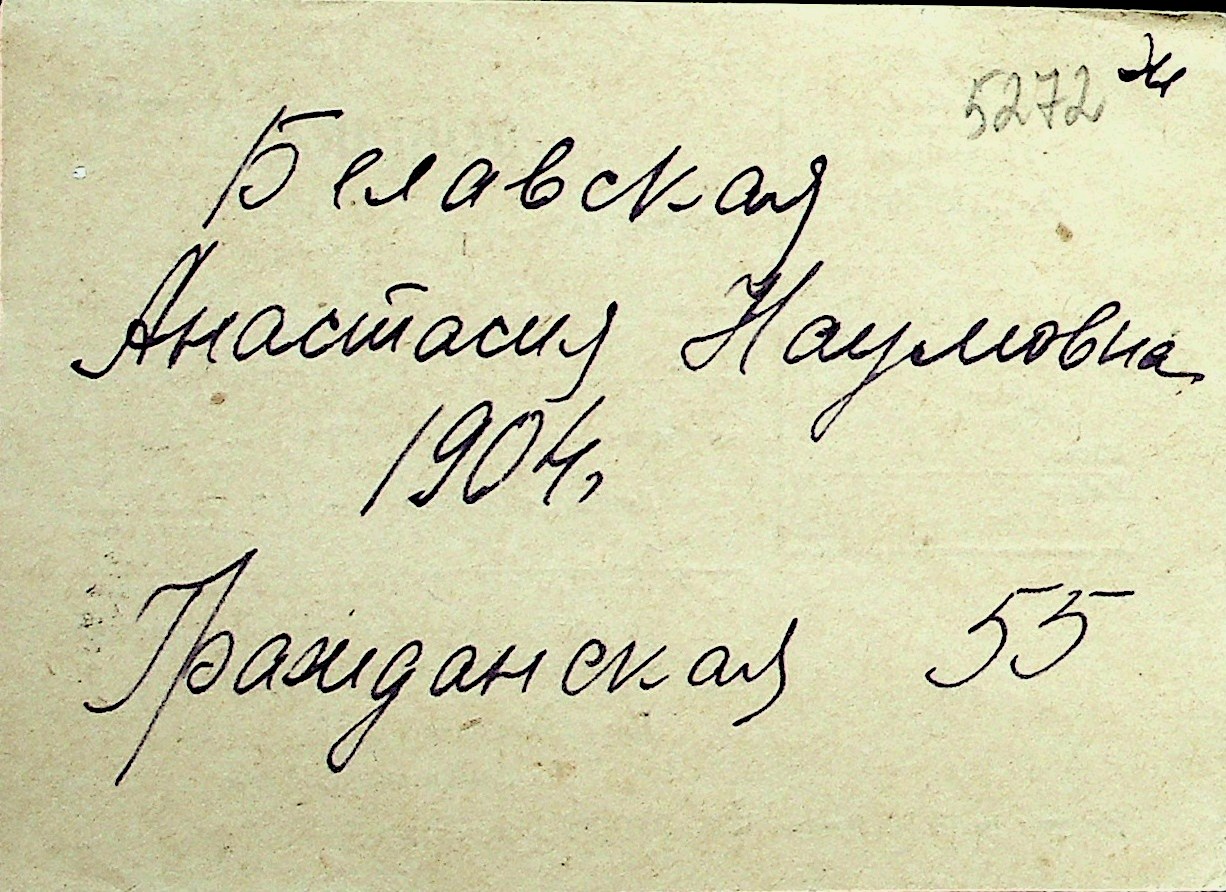 5272 Ж
Белавская
Анастасия Наумовна
1904,
Гражданская 55